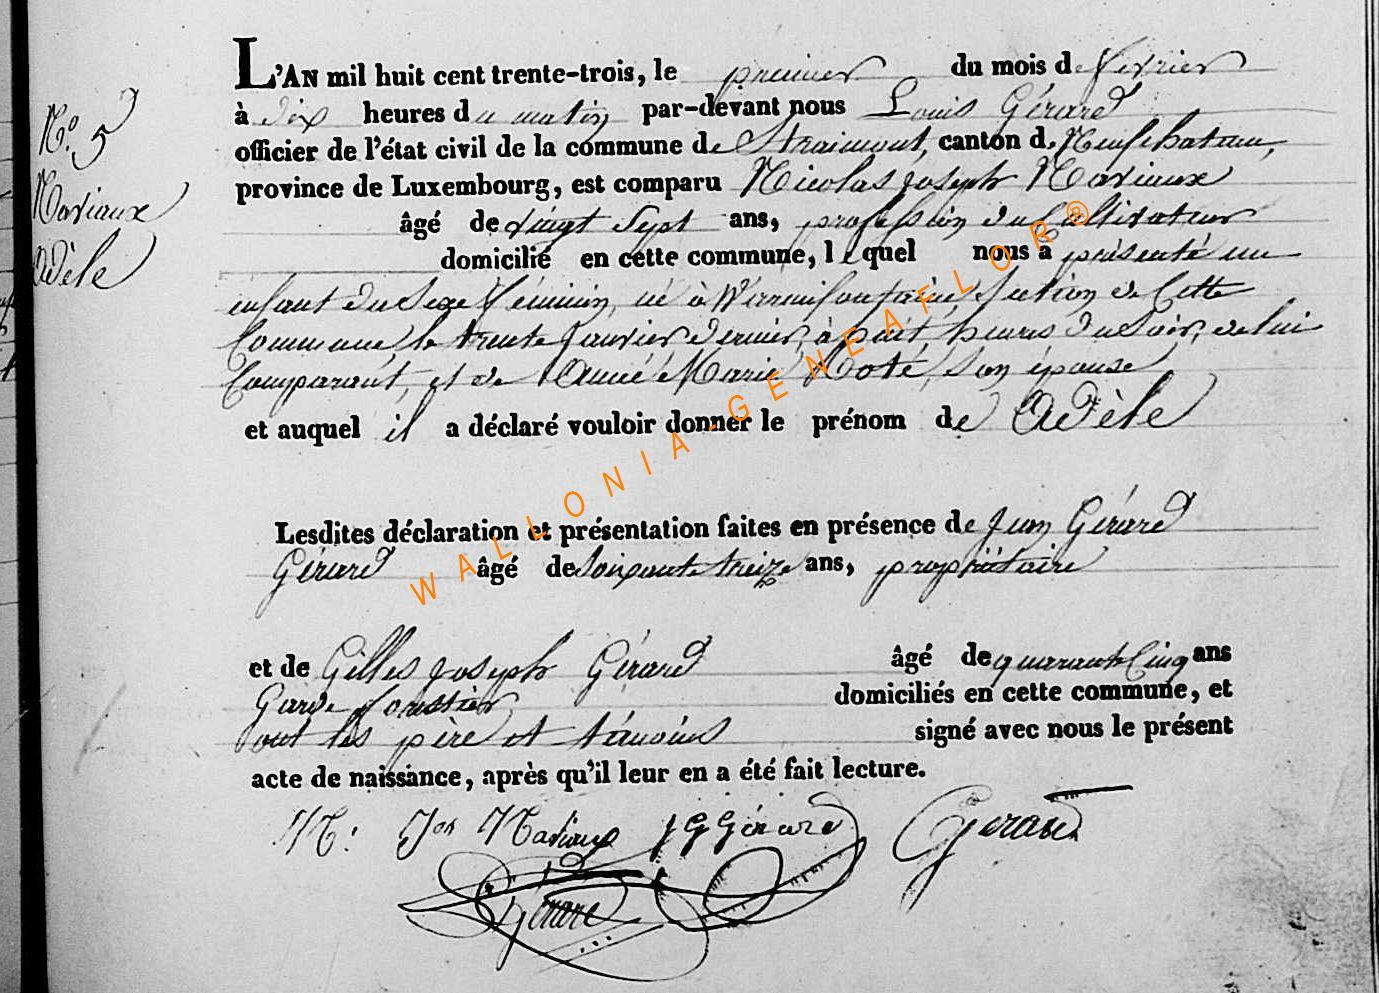 N.o 5
Mariaux
Adèle
L'AN mil huit cent trente-trois, le premier du mois de février
à dix heures du matin par-devant nous Louis Gérard
officier de l'état civil de la commune de Straimont, canton de Neufchateau,
province de Luxembourg, est comparu Nicolas joseph Mariaux
âgé de vingt sept ans, profession du Cultivateur
domicilié en cette commune, lequel nous a présenté un
enfant du Sexe féminin, né à Warmifontaine, Section de Cette
Commune, le trente Janvier dernier, à huit heures du Soir, de lui
Comparant, et de Anne Marie Noté, Son épouse
et auquel il a déclaré vouloir donner le prénom de Adèle
Lesdites déclaration et présentation faites en présence de Jean Gérard
Gérard âgé de Soixante treize ans, propriétaire
et de Gilles joseph Gérard âgé de quarante Cinq ans
Garde forestier domiciliés en cette commune, et
ont les père et témoins signé avec nous le présent
acte de naissance, après qu'il leur en a été fait lecture.
N. Jos Mariaux J G Gérard Gerard
Gérard
WALLONIA-GENEAFLOR®